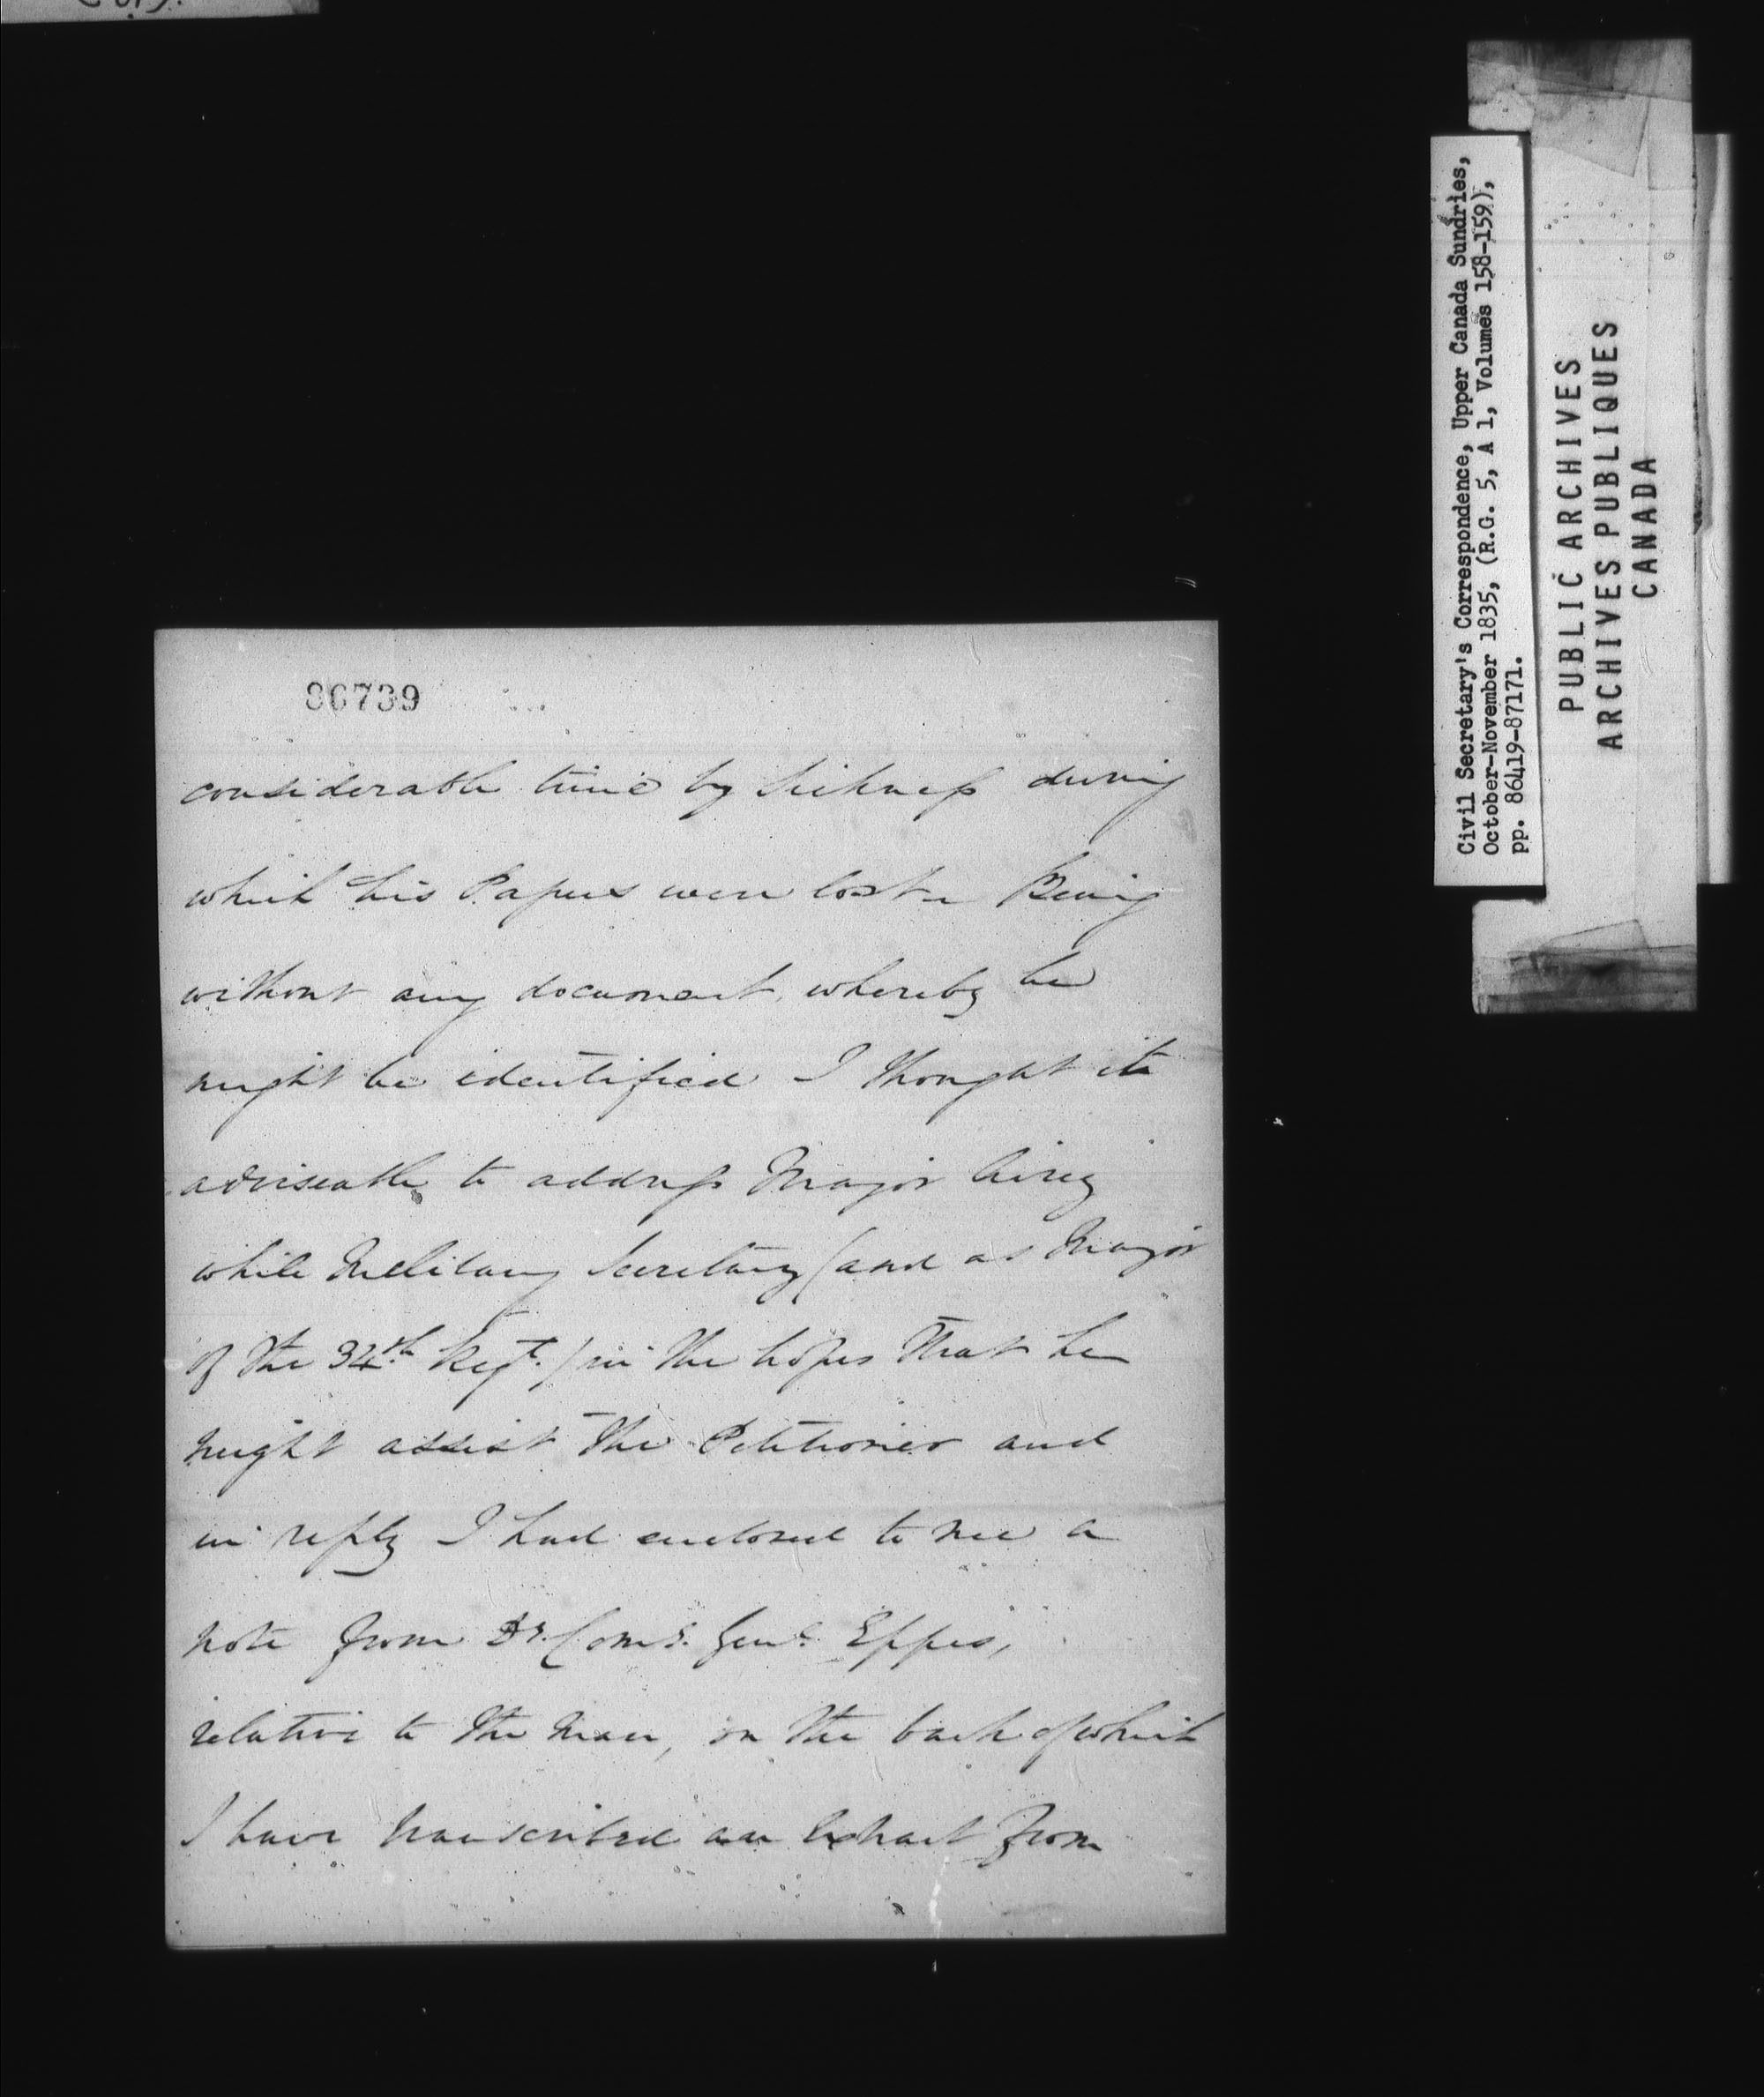 86739
considerable time by Sickness during
which his Papers were lost - Being
without any document whereby he
might be identified I thought it
adviseable to address Major Airey
while Military Secretary (and as Major
of the 34th Regt.) in the hopes that he
might assist the Petitioner and
in reply I had enclosed to me a
note from Dy. Comy. Genl. Eppes,
relative to the man, on the back of which
I have transcribed an Extract from
Civil Secretary's Correspondence, Upper Canada Sundries,
October-November 1835, (R.G. 5, A 1, Volumes 158-159),
pp. 86419-87171.
PUBLIC ARCHIVES
ARCHIVES PUBLIQUES
CANADA